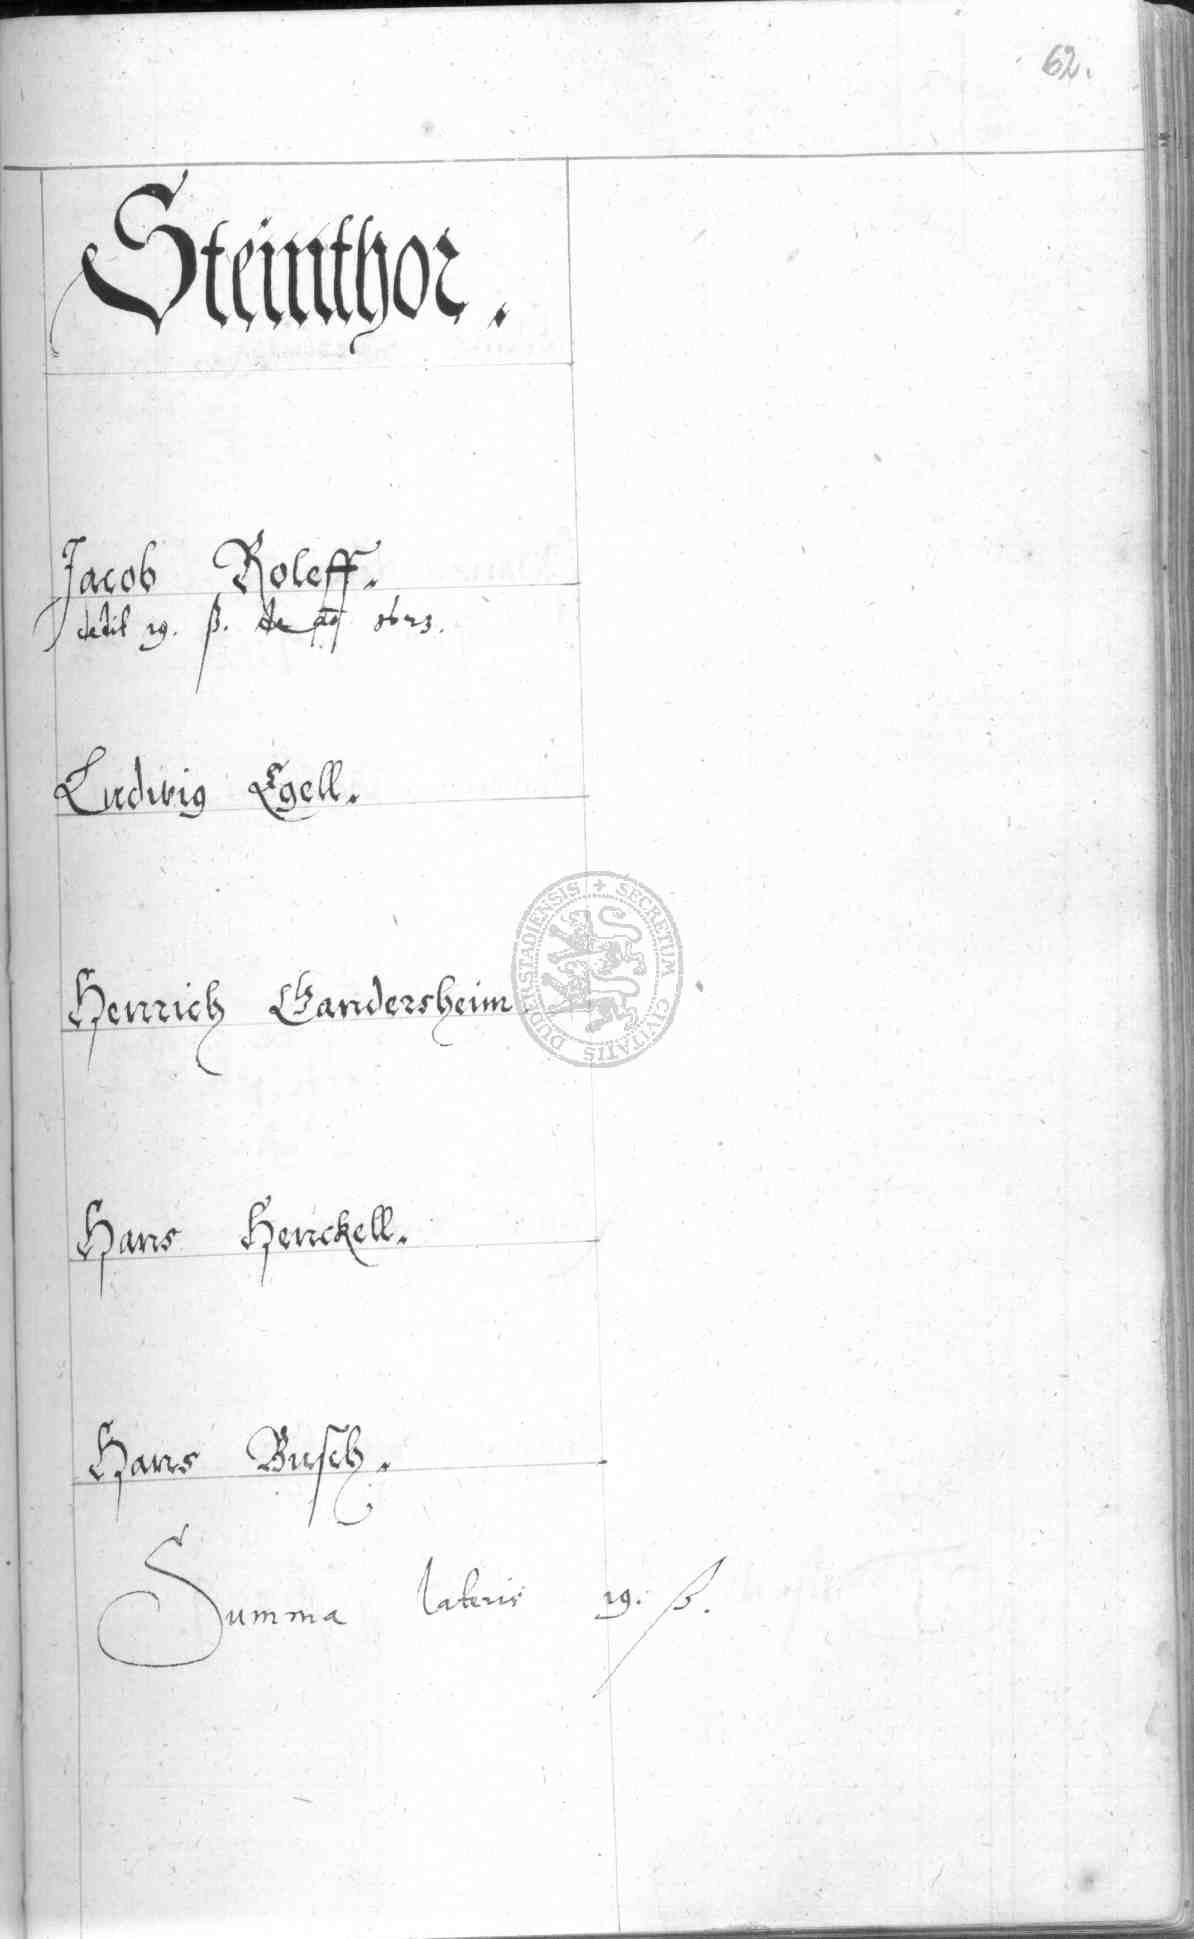 62.
Steinthor.
Jacob Roleff.
dedit 19. ß. de ao 1623.
Ludwig Egell.
Henrich Gandersheim
Hans Henckell.
Hans Busch.
Summa lateris 19. ß.
SECRETUM CIVITATIS DUDERSTADIENSIS +